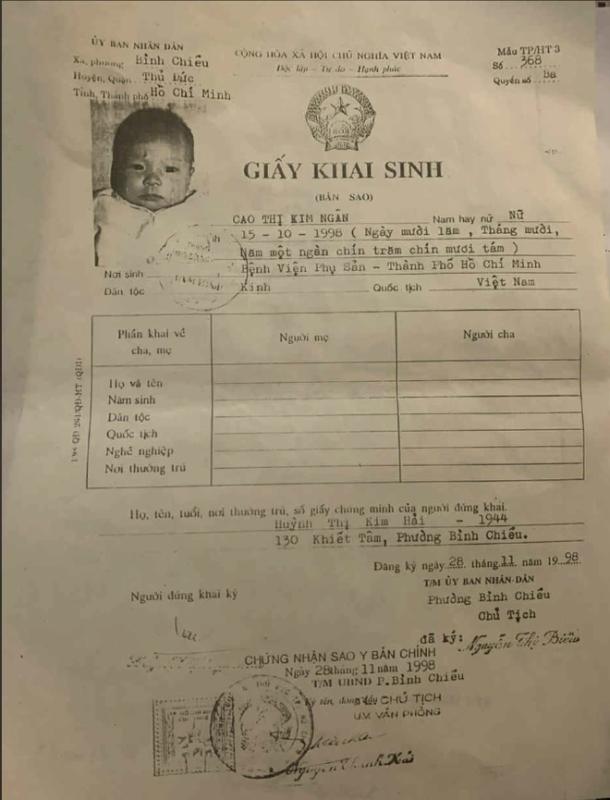 ỦY BAN NHÂN DÂN
Xã, phường Bình Chiểu
Huyện, Quận Thủ Đức
Tỉnh, Thành phố Hồ Chí Minh
CỘNG HÒA XÃ HỘI CHỦ NGHĨA VIỆT NAM
Độc lập - Tự do - Hạnh phúc
Mẫu TP/HT 3
Số 368
Quyển số
GIẤY KHAI SINH
(BẢN SAO)
CAO THỊ KIM NGÂN Nam hay nữ Nữ
15 - 10 - 1998 ( Ngày mười lăm , Tháng mười,
Năm một ngàn chín trăm chín mươi tám )
Nơi sinh Bệnh Viện Phụ Sản - Thành Phố Hồ Chí Minh
Dân tộc Kinh Quốc tịch Việt Nam
Phần khai về cha, mẹ Người mẹ Người cha
Họ và tên
Năm sinh
Dân tộc
Quốc tịch
Nghề nghiệp
Nơi thường trú
Họ, tên, tuổi, nơi thường trú, số giấy chứng minh của người đứng khai.
Huỳnh Thị Kim Hải - 1944
130 Khiết Tâm, Phường Bình Chiểu.
Đăng ký ngày 28 tháng 11 năm 19 98
T/M ỦY BAN NHÂN DÂN
Phường Bình Chiểu
Chủ Tịch
Người đứng khai ký
đã ký: Nguyễn Thị Biên
CHỨNG NHẬN SAO Y BẢN CHÍNH
Ngày 28 tháng 11 năm 1998
T/M UBND P. Bình Chiểu
CHỦ TỊCH
U.V VĂN PHÒNG